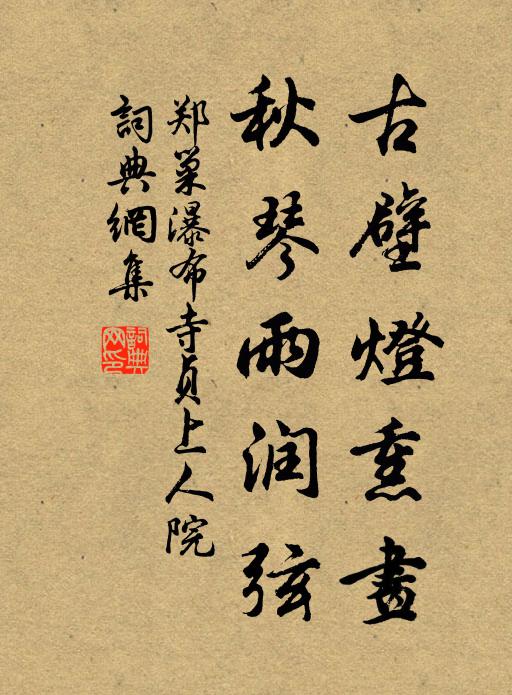 古壁燈熏畫
秋琴雨润弦
郑巢瀑布寺貞上人院
詞典網集
詞典网印